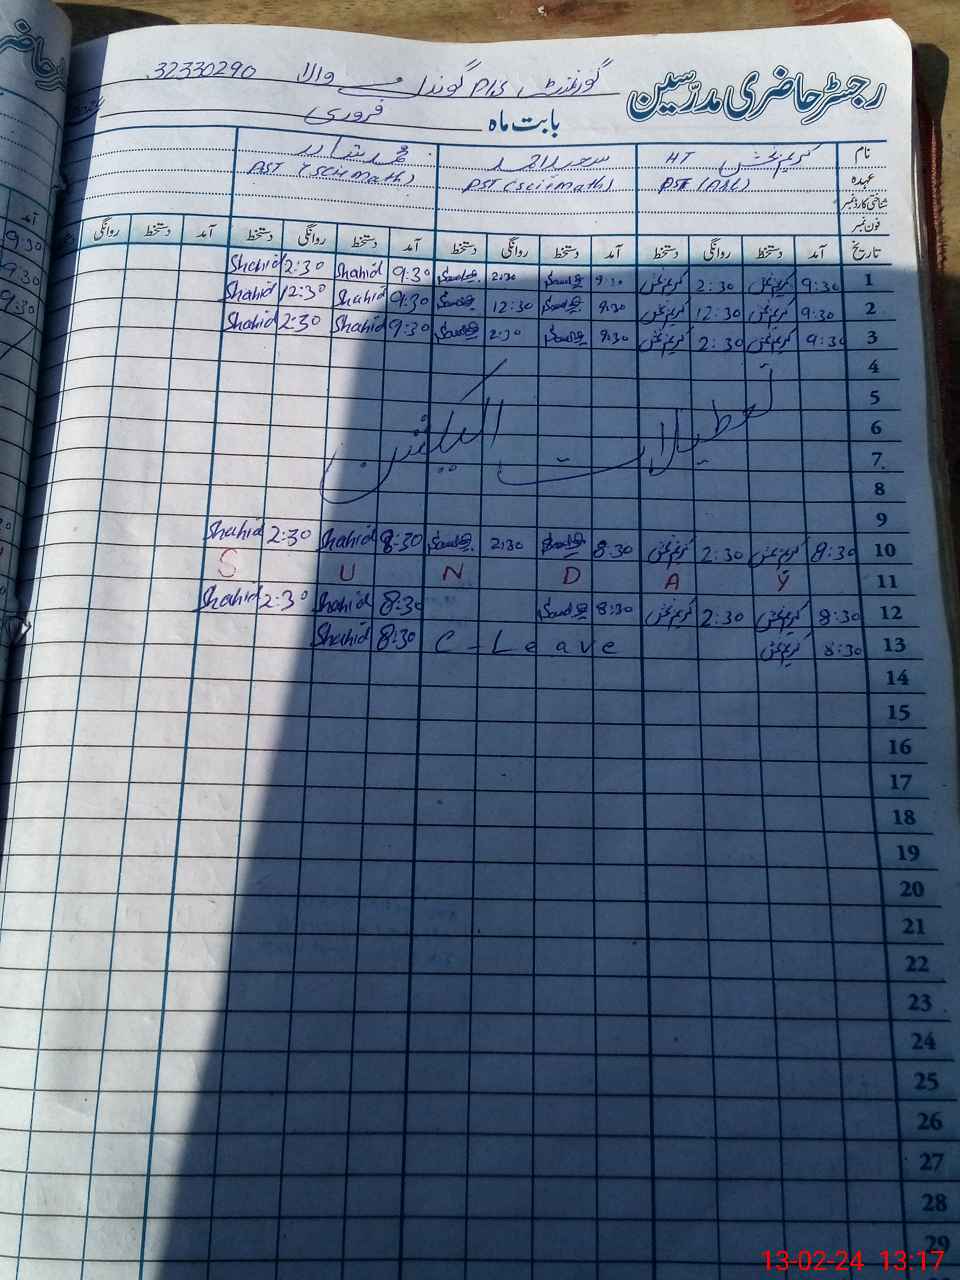 رجسٹر حاضری مدرسین
گورنمنٹ P/S گوندل والا 32330290
بابت ماہ فروری
نام کریم بخش HT سعید احمد محمد شاہد
عہدہ PST (Sci+Math) PST (Sci+Math)
شناختی کارڈ نمبر
فون نمبر
تاریخ آمد دستخط روانگی دستخط آمد دستخط روانگی دستخط آمد دستخط روانگی دستخط آمد دستخط روانگی
1 9:30 کریم بخش 2:30 کریم بخش 9:30 2:30 9:30 Shahid 2:30 Shahid
2 9:30 کریم بخش 12:30 کریم بخش 9:30 12:30 9:30 Shahid 12:30 Shahid
3 9:30 کریم بخش 2:30 کریم بخش 9:30 2:30 9:30 Shahid 2:30 Shahid
4
5
تعطیلات الیکشن
6
7
8
9
10 8:30 کریم بخش 2:30 کریم بخش 8:30 2:30 8:30 Shahid 2:30 Shahid
11 S U N D A Y
12 8:30 کریم بخش 2:30 کریم بخش 8:30 8:30 Shahid 2:30 Shahid
13 8:30 کریم بخش C-Leave 8:30 Shahid
14
15
16
17
18
19
20
21
22
23
24
25
26
27
28
29
13-02-24 13:17